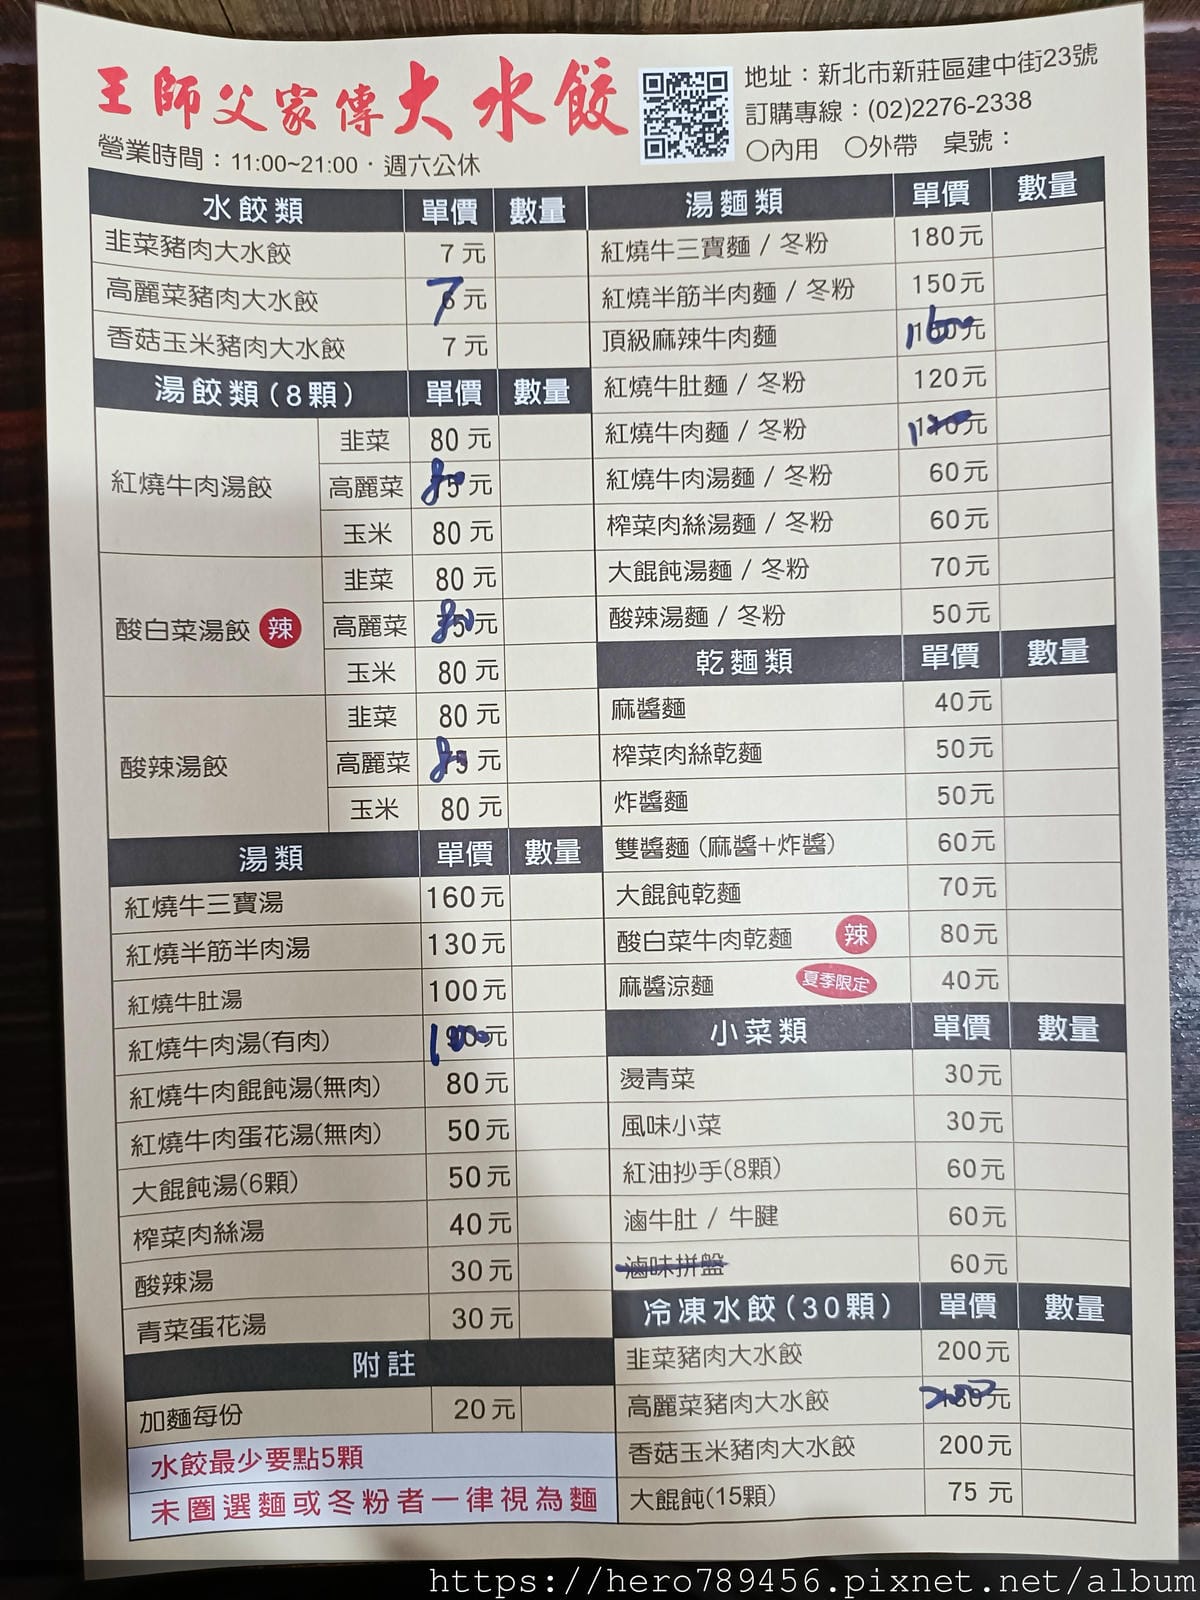 王師父家傳大水餃
營業時間：11:00~21:00・週六公休
地址：新北市新莊區建中街23號
訂購專線：(02)2276-2338
○內用 ○外帶 桌號：
水餃類 單價 數量
韭菜豬肉大水餃 7元
高麗菜豬肉大水餃 7元
香菇玉米豬肉大水餃 7元
湯餃類(8顆) 單價 數量
紅燒牛肉湯餃
韭菜 80元
高麗菜 80元
玉米 80元
酸白菜湯餃 辣
韭菜 80元
高麗菜 80元
玉米 80元
酸辣湯餃
韭菜 80元
高麗菜 80元
玉米 80元
湯類 單價 數量
紅燒牛三寶湯 160元
紅燒半筋半肉湯 130元
紅燒牛肚湯 100元
紅燒牛肉湯(有肉) 100元
紅燒牛肉餛飩湯(無肉) 80元
紅燒牛肉蛋花湯(無肉) 50元
大餛飩湯(6顆) 50元
榨菜肉絲湯 40元
酸辣湯 30元
青菜蛋花湯 30元
附註
加麵每份 20元
水餃最少要點5顆
未圈選麵或冬粉者一律視為麵
湯麵類 單價 數量
紅燒牛三寶麵 / 冬粉 180元
紅燒半筋半肉麵 / 冬粉 150元
頂級麻辣牛肉麵 160元
紅燒牛肚麵 / 冬粉 120元
紅燒牛肉麵 / 冬粉 120元
紅燒牛肉湯麵 / 冬粉 60元
榨菜肉絲湯麵 / 冬粉 60元
大餛飩湯麵 / 冬粉 70元
酸辣湯麵 / 冬粉 50元
乾麵類 單價 數量
麻醬麵 40元
榨菜肉絲乾麵 50元
炸醬麵 50元
雙醬麵(麻醬+炸醬) 60元
大餛飩乾麵 70元
酸白菜牛肉乾麵 辣 80元
麻醬涼麵 夏季限定 40元
小菜類 單價 數量
燙青菜 30元
風味小菜 30元
紅油抄手(8顆) 60元
滷牛肚 / 牛腱 60元
滷味拼盤 60元
冷凍水餃(30顆) 單價 數量
韭菜豬肉大水餃 200元
高麗菜豬肉大水餃 200元
香菇玉米豬肉大水餃 200元
大餛飩(15顆) 75元
https://hero789456.pixnet.net/album